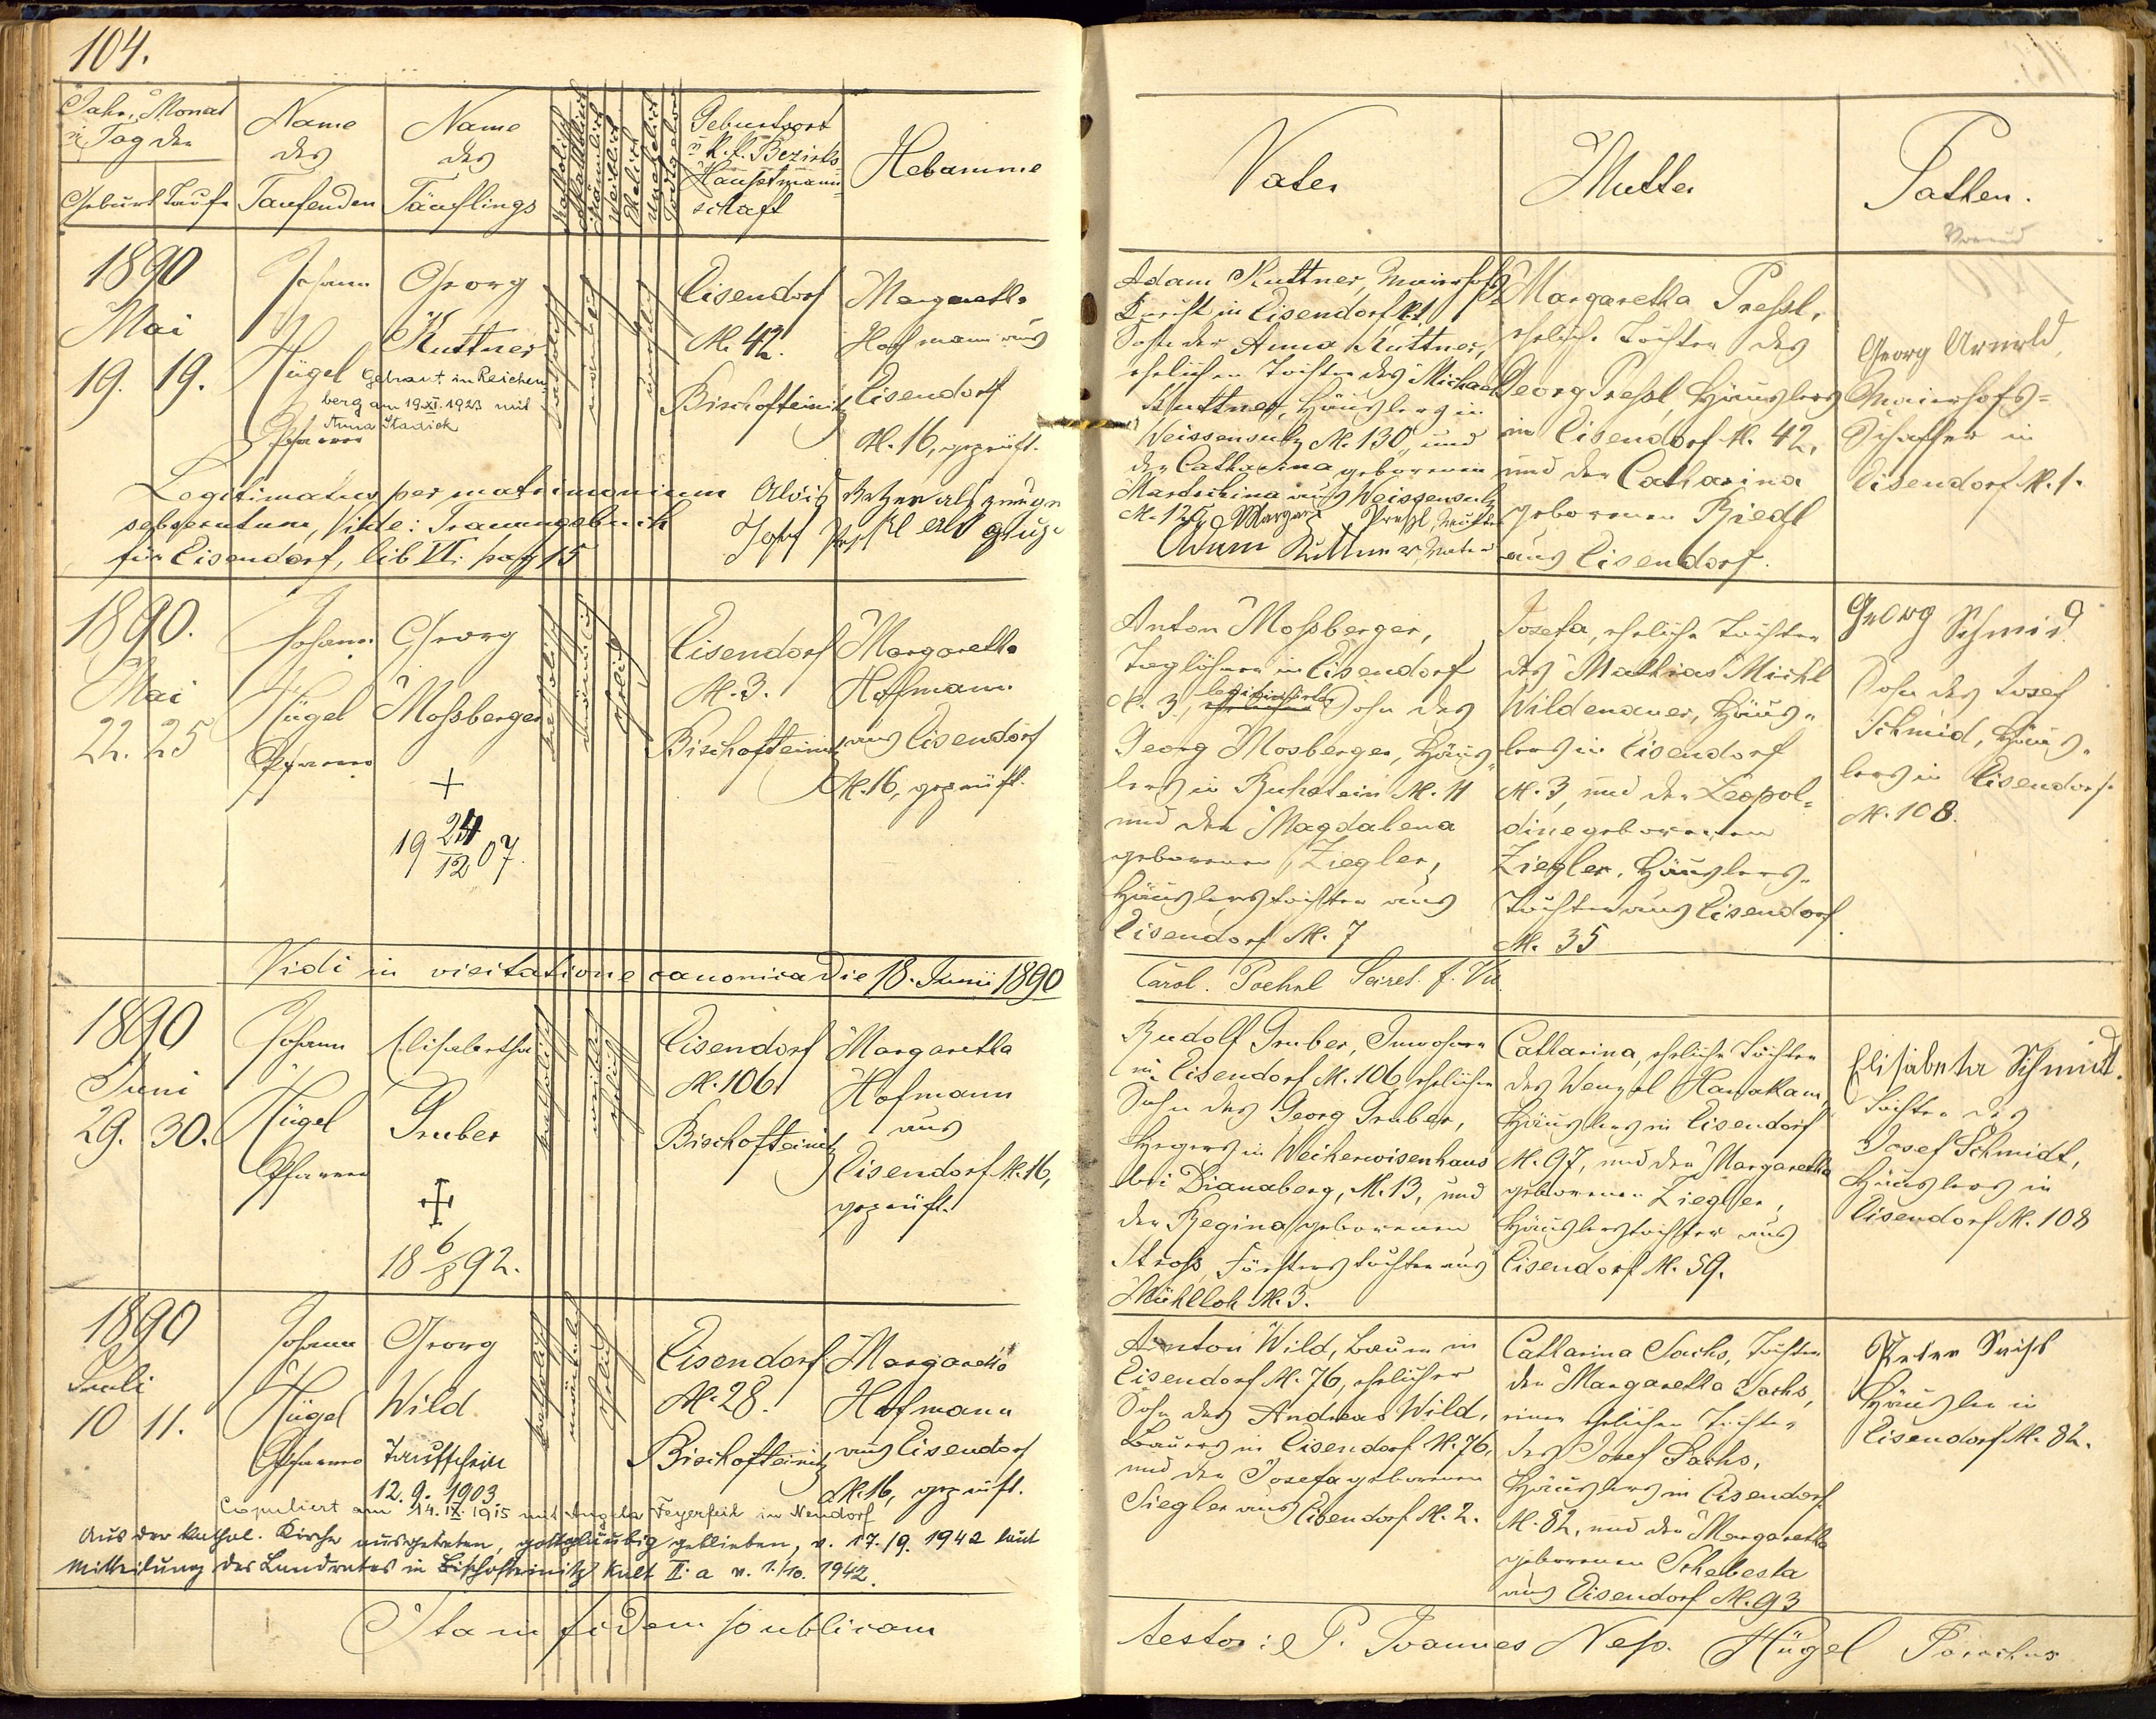 104.
Jahr, Monat
u Tag der
Geburt Taufe
Name
des
Taufenden
Name
des
Täuflings
Katholisch
Akatholisch
Männlich
Weiblich
Ehelich
Unehelich
Todtgeboren
Geburtsort
u K. k. Bezirks
Hauptmann-
schaft
Hebamme
Vater
Mutter
Pathen.
1890
Mai
19. 19.
Johann
Hügel
Pfarrer
Georg
Kuttner
Getraut in Reichen-
berg am 19.XI.1923 mit
Anna
katholisch
männlich
unehelich
Eisendorf
N. 42.
Bischofteinitz
Margareth
Hofmann aus
Eisendorf
N. 16, geprüft.
Legitimatus per matrimonium
subsecutum, Vide: Trauungsbuch
für Eisendorf, lib VI. pag 15
Alois als Zeuge
Josef Preßl als Zeuge
Adam Kuttner, Maierhofs
Knecht in Eisendorf N. 1,
Sohn der Anna Kuttner,
ehelichen Tochter des Michael
Kuttner, Häuslers in
Weissensulz N. 130, und
der Catharina geborenen
aus Weissensulz
N. 126 Margar. Preßl, Mutter
Adam Kuttner Vater
Margaretha Preßl,
eheliche Tochter des
Georg Preßl, Häuslers
in Eisendorf N. 42,
und der Catharina
geborenen Riedl
aus Eisendorf.
Georg Arnold,
Maierhofs=
Schaffer in
Eisendorf N. 1.
1890.
Mai
22. 25
Johann
Hügel
Pfarrer
Georg
Moßberger
+
19 24/12 07.
katholisch
männlich
ehelich
Eisendorf
N. 3.
Bischofteinitz
Margareth
Hofmann
aus Eisendorf
N. 16, geprüft.
Anton Moßberger,
Taglöhner in Eisendorf
N. 3, legitimirter
ehelicher Sohn des
Georg Mosberger, Häus-
lers in Ruhstein N. 11
und der Magdalena
geborenen Ziegler,
Häuslerstochter aus
Eisendorf N. 7
Josefa, eheliche Tochter
des Mathias Michl
Wildenauer, Häus-
lers in Eisendorf
N. 3, und der Leopol-
dine geborenen
Ziegler, Häuslers-
tochter aus Eisendorf
N. 35
Georg Schmid
Sohn des Josef
Schmid, Häus-
lers in Eisendorf
N. 108.
Vidi in visitatione canonica die 18. Junii 1890
Carol. Poehnl
1890
Juni
29. 30.
Johann
Hügel
Pfarrer
Elisabetha
Gruber
18 6/8 92.
katholisch
weiblich
ehelich
Eisendorf
N. 106
Bischofteinitz
Margaretha
Hofmann
aus
Eisendorf N. 16,
geprüft.
Rudolf Gruber, Inwohner
in Eisendorf N. 106, ehelicher
Sohn des Georg Gruber,
Hegers in Weiherwisenhaus
bei Dianaberg, N. 13, und
der Regina geborenen
Stroß, Försters Tochter aus
Mühlloh N. 3.
Catharina, eheliche Tochter
des Wenzel Hanakam,
Häuslers in Eisendorf
N. 97, und der Margaretha
geborenen Ziegler,
Häuslerstochter aus
Eisendorf N. 59.
Elisabetha Schmidt.
Tochter des
Josef Schmidt,
Häuslers in
Eisendorf N. 108
1890
Juli
10 11.
Johann
Hügel
Pfarrer
Georg
Wild
Taufschein
12. 9. 1903.
katholisch
männlich
ehelich
Eisendorf
N. 28.
Bischofteinitz
Margareth
Hofmann
aus Eisendorf
N. 16, geprüft.
Copuliert am 14. IX. 1915 mit Angela Feyerfeil in Neudorf
Aus der kathol. Kirche ausgetreten, gottgläubig geblieben, v. 17./9. 1942 laut
Mitteilung des Landrates in Bischofteinitz Kult II a v. 1./10. 1942.
Anton Wild, Bauer in
Eisendorf N. 76, ehelicher
Sohn des Andreas Wild,
Bauers in Eisendorf N. 76,
und der Josefa geborenen
Siegler aus Eisendorf N. 2.
Catharina Sachs, Tochter
der Margaretha Sachs,
einer ehelichen Tochter
des Josef Sachs,
Häuslers in Eisendorf
N. 82, und der Margaretha
geborenen Schebesta
aus Eisendorf N. 93
Peter
Häusler in
Eisendorf N. 82.
Ita in fidem publicam
testor: P. Joannes Nep. Hügel Parochus